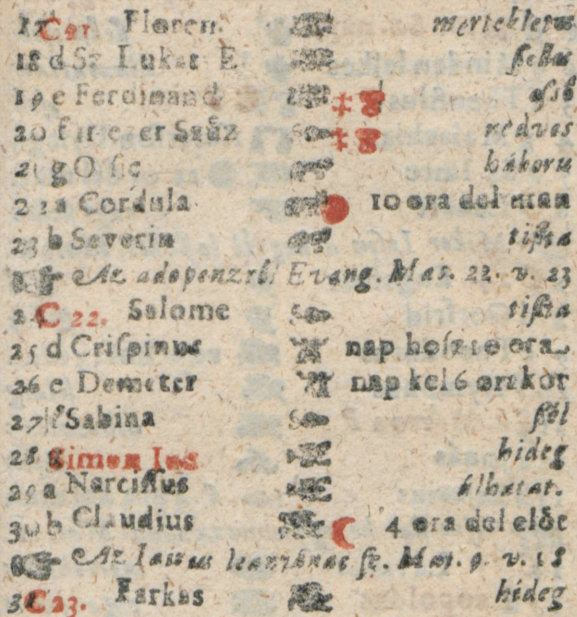 17 C 21. Floren. mertekletes
18 d Sz Lukat E. ſelas
19 e Ferdinand
20 f Szüz nedves
21 g háboru
22 a Cordula 10 ora del utan
23 b Severin tiſta
Az adopenzröl Evang. Mat. 22. v. 23
24 C 22. Salome tiſta
25 d Criſpinus nap hoſza 10 ora
26 e Demeter nap kel 6 orakor
27 f Sabina ſzél
28 g Simon Iud hideg
29 a Narciſſus álhatat.
30 b Claudius 4 ora del elöt
Az Iairus leanyának ſz. Mat. 9. v. 18
31 C 23. Farkas hideg